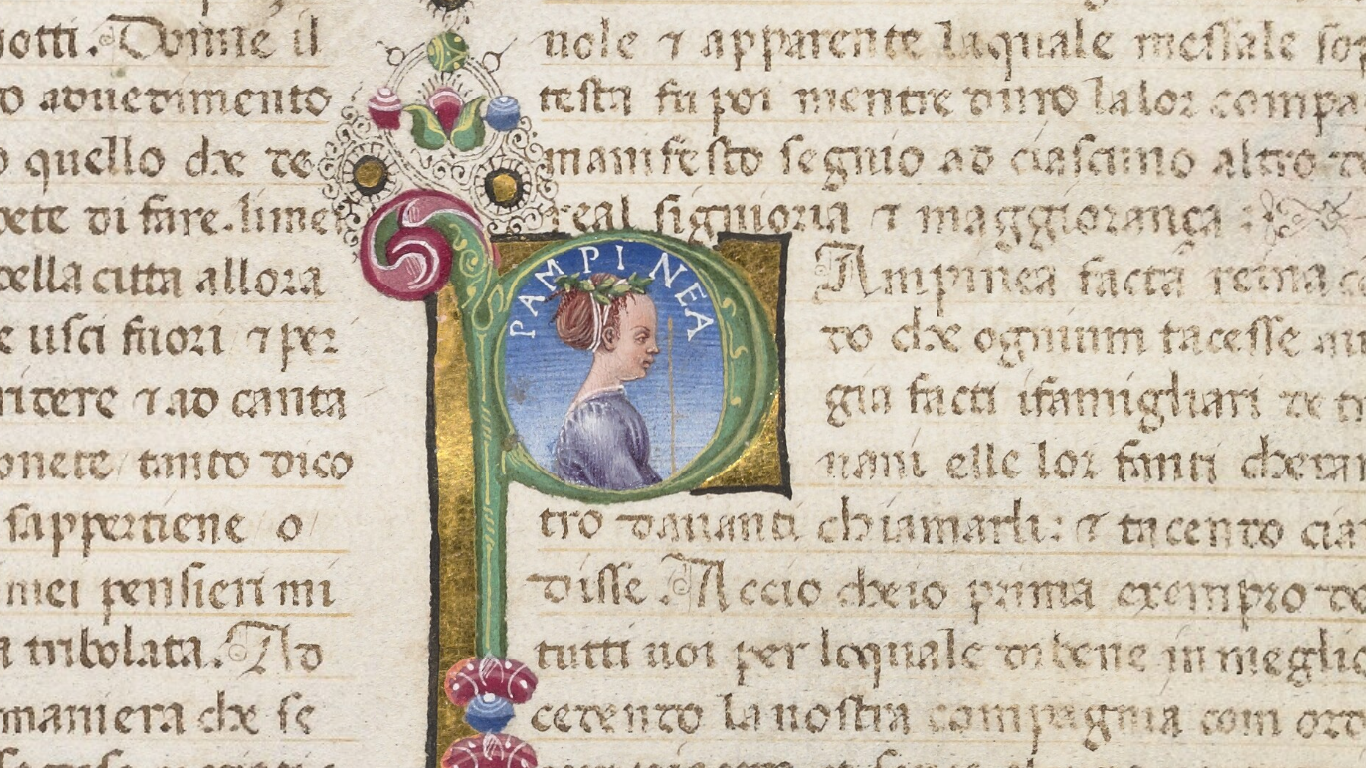 otti. Donne il
o aduedimento
o quello che de
dete di fare. lunet
della citta allora
e usci fuori ⁊ per
ridere ⁊ ad canta
onete / tanto dico
sappertiene o
miei pensieri mi
a tribolata. Ad
maniera che se
uole ⁊ apparente laquale messale sop
testa fu poi mentre duro lalor compa
manifesto segnio ad ciascuno altro d
real signioria ⁊ maggiorança :
PAMPINEA
Ampinea facta reina co
do che ogniun tacesse au
gia facti ifamigliari de
uani elle lor fanti
tro dauanti chiamarli: ⁊ tacendo cia
disse. Accio cheio prima exempro de
tutti uoi per loquale di bene in meglio
cedendo la nostra compagnia con ord